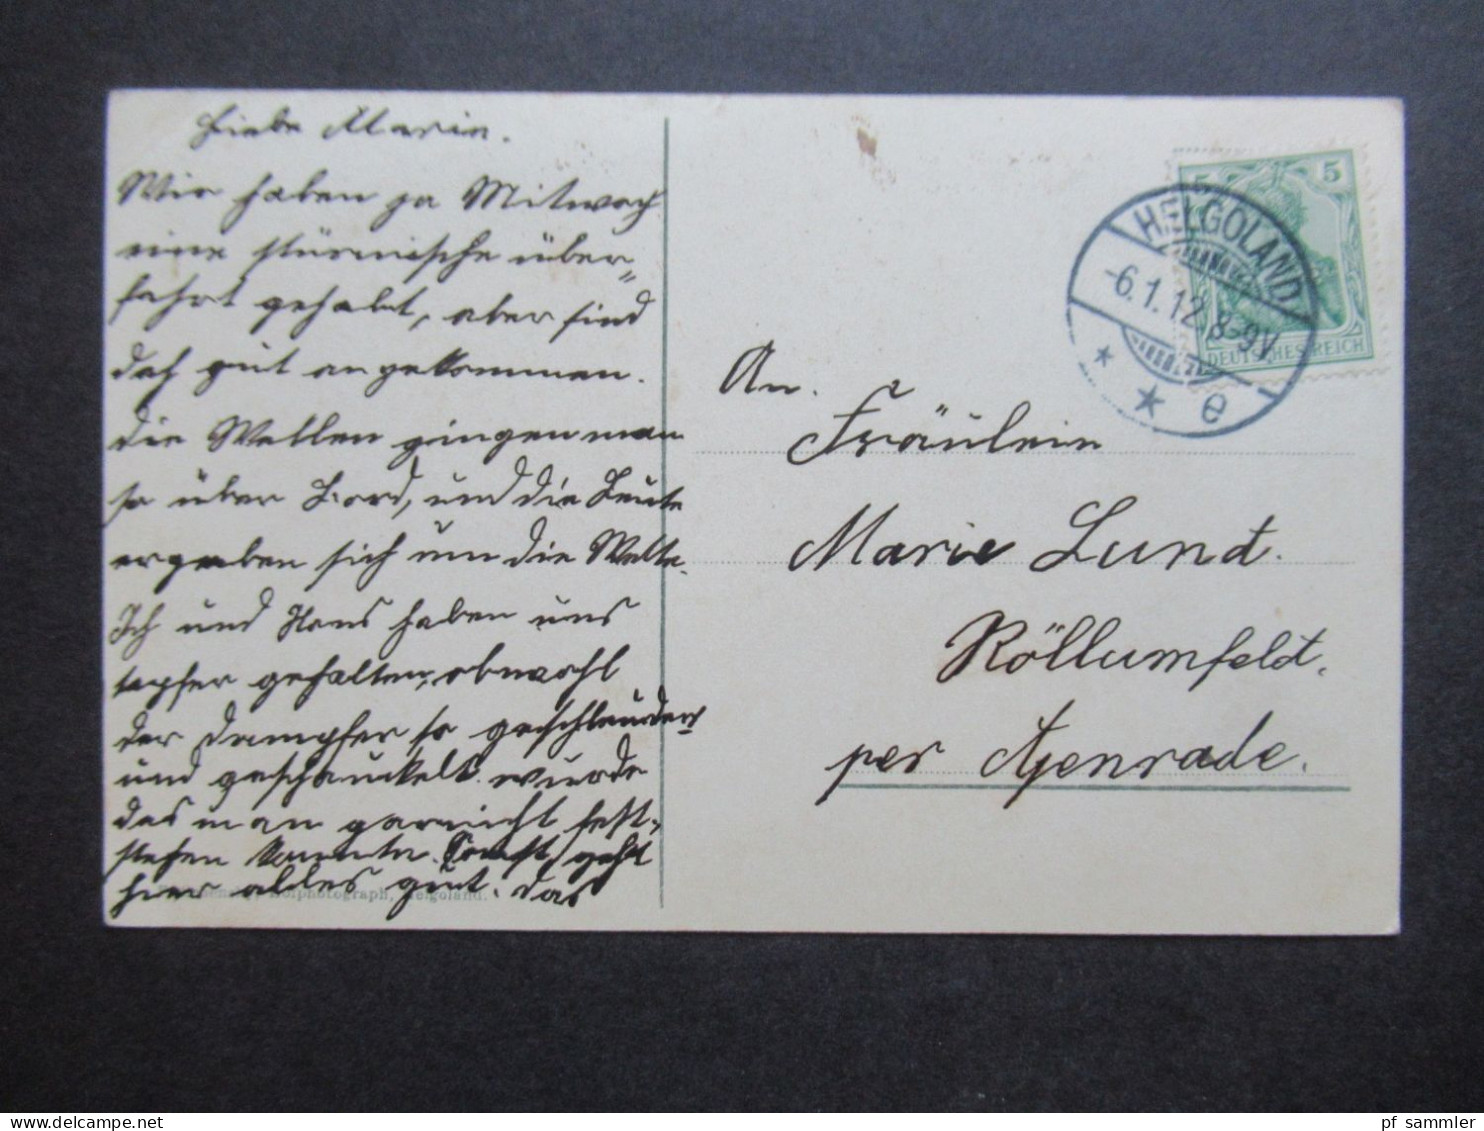 Liebe Marie.
Wir haben ja Mitwoch
eine stürmische über-
fahrt gehabt, aber sind
doch gut angekommen.
die Wellen gingen man
so über Bord, und die Leute
ergaben sich um die Wette.
Ich und Hans haben uns
tapfer gehalten, obwohl
der Dampfer so geschleudert
und geschauckelt wurde
das man garnicht fest-
stehen konnte. Sonst geht
hier alles gut. das
Hofphotograph, Helgoland.
HELGOLAND
-6.1.12.8-9V.
* * e
5 5
DEUTSCHES REICH
An.
Fräulein
Marie Lund.
Röllumfeld.
per Apenrade.
pf_sammler